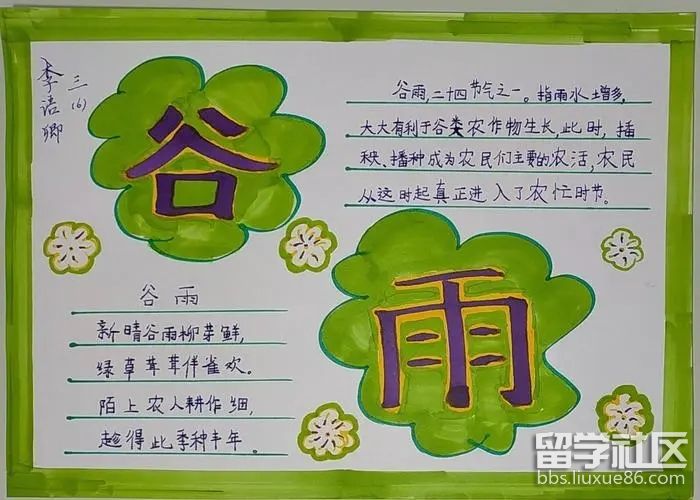 三(6)
李语卿
谷
谷雨,二十四节气之一。指雨水增多,
大大有利于谷类农作物生长,此时,播
秧、播种成为农民们主要的农活,农民
从这时起真正进入了农忙时节。
谷雨
新晴谷雨柳芽鲜,
绿草茸茸伴雀欢。
陌上农人耕作细,
趁得此季种丰年。
雨
留学社区
bbs.liuxue86.com